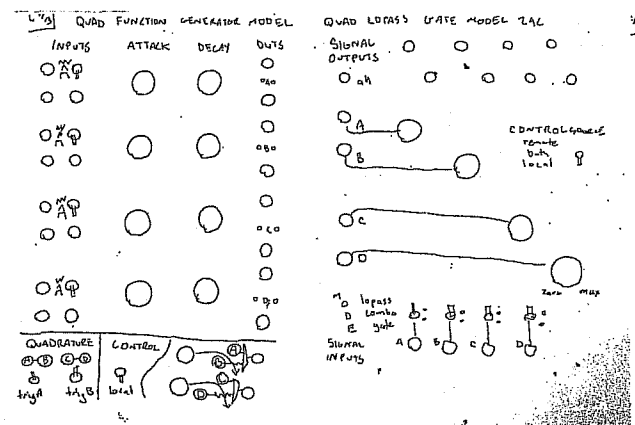 QUAD FUNCTION GENERATOR MODEL
INPUTS ATTACK DECAY OUTS
A
B
C
D
QUADRATURE
A B C D
trigA trigB
CONTROL
local
A
B
C
D
QUAD LOPASS GATE MODEL 292C
SIGNAL
OUTPUTS
all
A
B
C
D
CONTROL SOURCE
remote
both
local
zero max
MODE
lopass
combo
gate
SIGNAL
INPUTS
A B C D